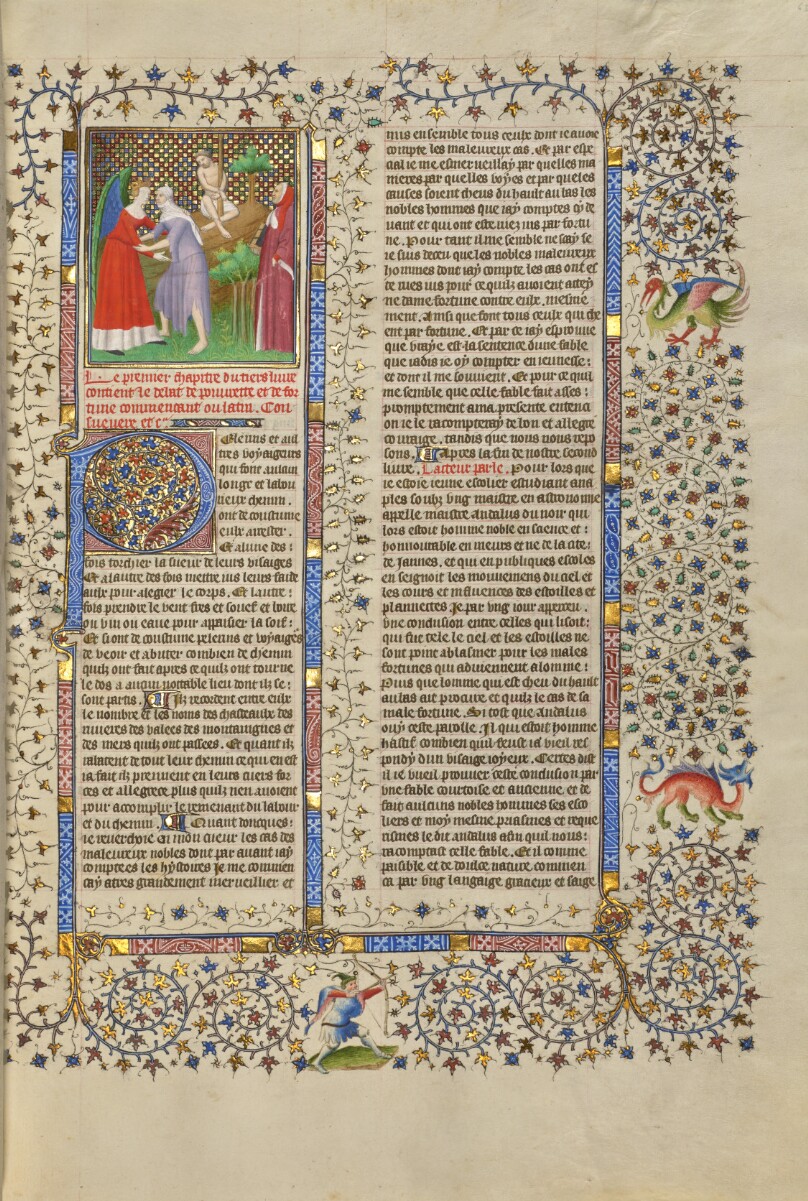 Le premier chapitre du tiers livre
contient le debat de pouurete et de for
tune commencant ou latin. Con
sueuere et c̄
Pelerins et aul
tres voyageurs
qui font aucun
longe et labou
rieux chemin.
ont de coustume
eulx arrester.
Et alune des:
fois torchier la sueur de leurs visaiges
Et alautre des fois mettre ius leurs farde
aulx pour alegier le corps. Et lautre:
fois prendre le vent fres et souef et boire
ou vin ou eaue pour appaisier la soif:
Et si ont de coustume pelerins et voyagers
de veoir et abuter combien de chemin
quilz ont fait apres ce quilz ont tourne
le dos a aucun notable lieu dont ilz se:
sont partis. Ilz recordent entre eulx
le nombre et les noms des chasteaulx des
riuieres des valees des montaingnes et
des mers quilz ont passees. Et quant ilz
ralatent de tout leur chemin ce qui en est
ia fait ilz prennent en leurs cuers for
ces et allegrece plus quilz nen auoient
pour accomplir le remenant du labour
et du chemin. Quant doncques:
ie reuerchoie en mon cueur les cas des
maleureux nobles dont par auant iay
comptees les hystoires Je me commen
cay acres grandement merueillier et
mis ensemble tous ceulx dont ie auoie
compte les maleureux cas. Et par espe
cial ie me esmerueillay par quelles ma
nieres par quelles voyes et par queles
causes soient cheus du hault au bas les
nobles hommes que iay comptes cy de
uant et qui ont este mez ius par fortu
ne. Pour tant il me semble ne scay se
ie suis deceu que les nobles maleureux
hommes dont iay compte les cas ont es
te mes ius pour ce quilz auoient attey
ne dame fortune contre eulx. mesme
ment. Ainsi que font tous ceulx qui che
ent par fortune. Et par ce iay esprouue
que vraye est la sentence dune fable
que iadis ie oy compter en ieunesse:
et dont il me souuient. Et pour ce quil
me semble que celle fable fait asses:
promptement a ma presente entenci
on ie le racompteray de bon et allegre
couraige. tandis que nous nous repo
sons. Apres la fin de nostre second
liure. Lacteur parle. Pour lors que
ie estoie ieune escolier estudiant ana
ples soubz vng maistre en astronomie
appelle maistre Andalus du noir qui
lors estoit homme noble en science et:
honnourable en meurs et ne de la cite:
de Jannes. et qui en publiques escoles
enseignoit les mouuemens du ciel et
les cours et muances des estoilles et
plannettes. Je par vng iour aperceu.
vne conclusion entre celles qui lisoit:
qui fut tele le ciel et les estoilles ne
sont point ablasmer pour les males
fortunes qui aduiennent alomme:
Puis que lomme qui est cheu du hault
au bas ait procure et quis le cas de sa
male fortune. Si tost que Andalus
ouy ceste parolle. Jl qui estoit homme
hastif combien quil feust ia vieil res
pondy dun visaige ioyeux. Certes dist
il ie vueil prouuer ceste conclusion par
vne fable courtoise et ancienne. et de
fait aucuns nobles hommes ses esco
liers et moy mesme priasmes et reque
rismes le dit andalus afin quil nous:
racomptast celle fable. Et il comme
paisible et de doulce nature commen
ca par vng langaige gracieux et saige